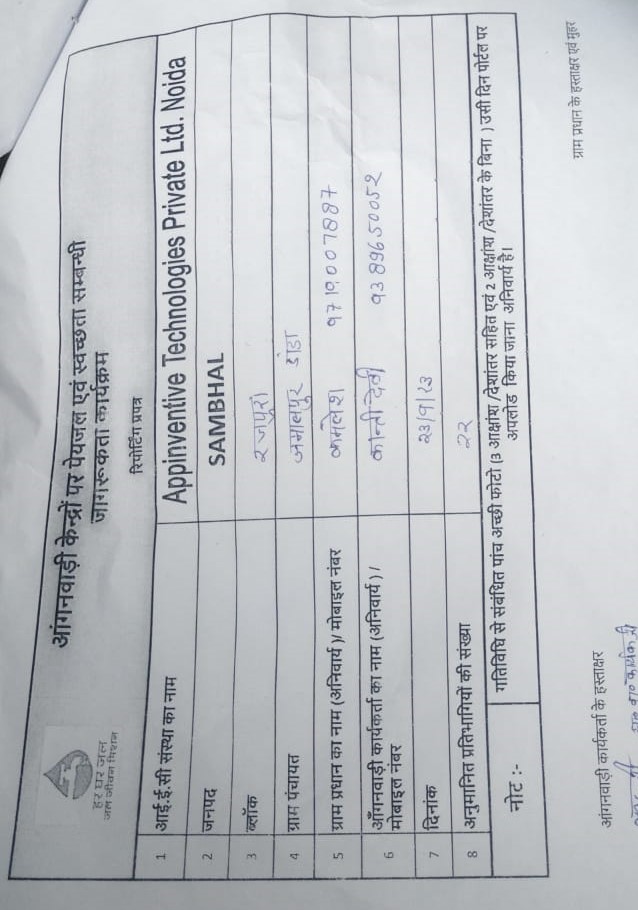 हर घर जल
जल जीवन मिशन
आंगनवाड़ी केन्द्रों पर पेयजल एवं स्वच्छता सम्बन्धी
जागरूकता कार्यक्रम
रिपोर्टिंग प्रपत्र
1 आई.ई.सी संस्था का नाम Appinventive Technologies Private Ltd. Noida
2 जनपद SAMBHAL
3 ब्लॉक रजपुरा
4 ग्राम पंचायत जमालपुर डांडा
5 ग्राम प्रधान का नाम (अनिवार्य )/ मोबाइल नंबर कमलेश 9719007887
6 आँगनवाड़ी कार्यकर्ता का नाम (अनिवार्य ) /
मोबाइल नंबर कान्ती देवी 9389650052
7 दिनांक 23/9/23
8 अनुमानित प्रतिभागियों की संख्या 22
नोट :- गतिविधि से संबंधित पांच अच्छी फोटो (3 आक्षांश /देशांतर सहित एवं 2 आक्षांश /देशांतर के बिना ) उसी दिन पोर्टल पर
अपलोड किया जाना अनिवार्य है।
आंगनवाड़ी कार्यकर्ता के हस्ताक्षर
ग्राम प्रधान के हस्ताक्षर एवं मुहर